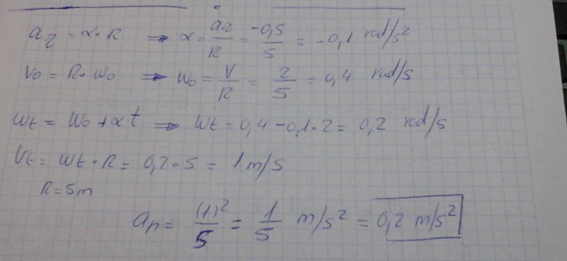 a₂ = α·R → α = a₂/R = -0,5/5 = -0,1 rad/s²
V₀ = R·ω₀ → ω₀ = V/R = 2/5 = 0,4 rad/s
ωt = ω₀ + αt → ωt = 0,4 - 0,1·2 = 0,2 rad/s
Vt = ωt·R = 0,2·5 = 1 m/s
R = 5m
aₙ = (1)²/5 = 1/5 m/s² = 0,2 m/s²